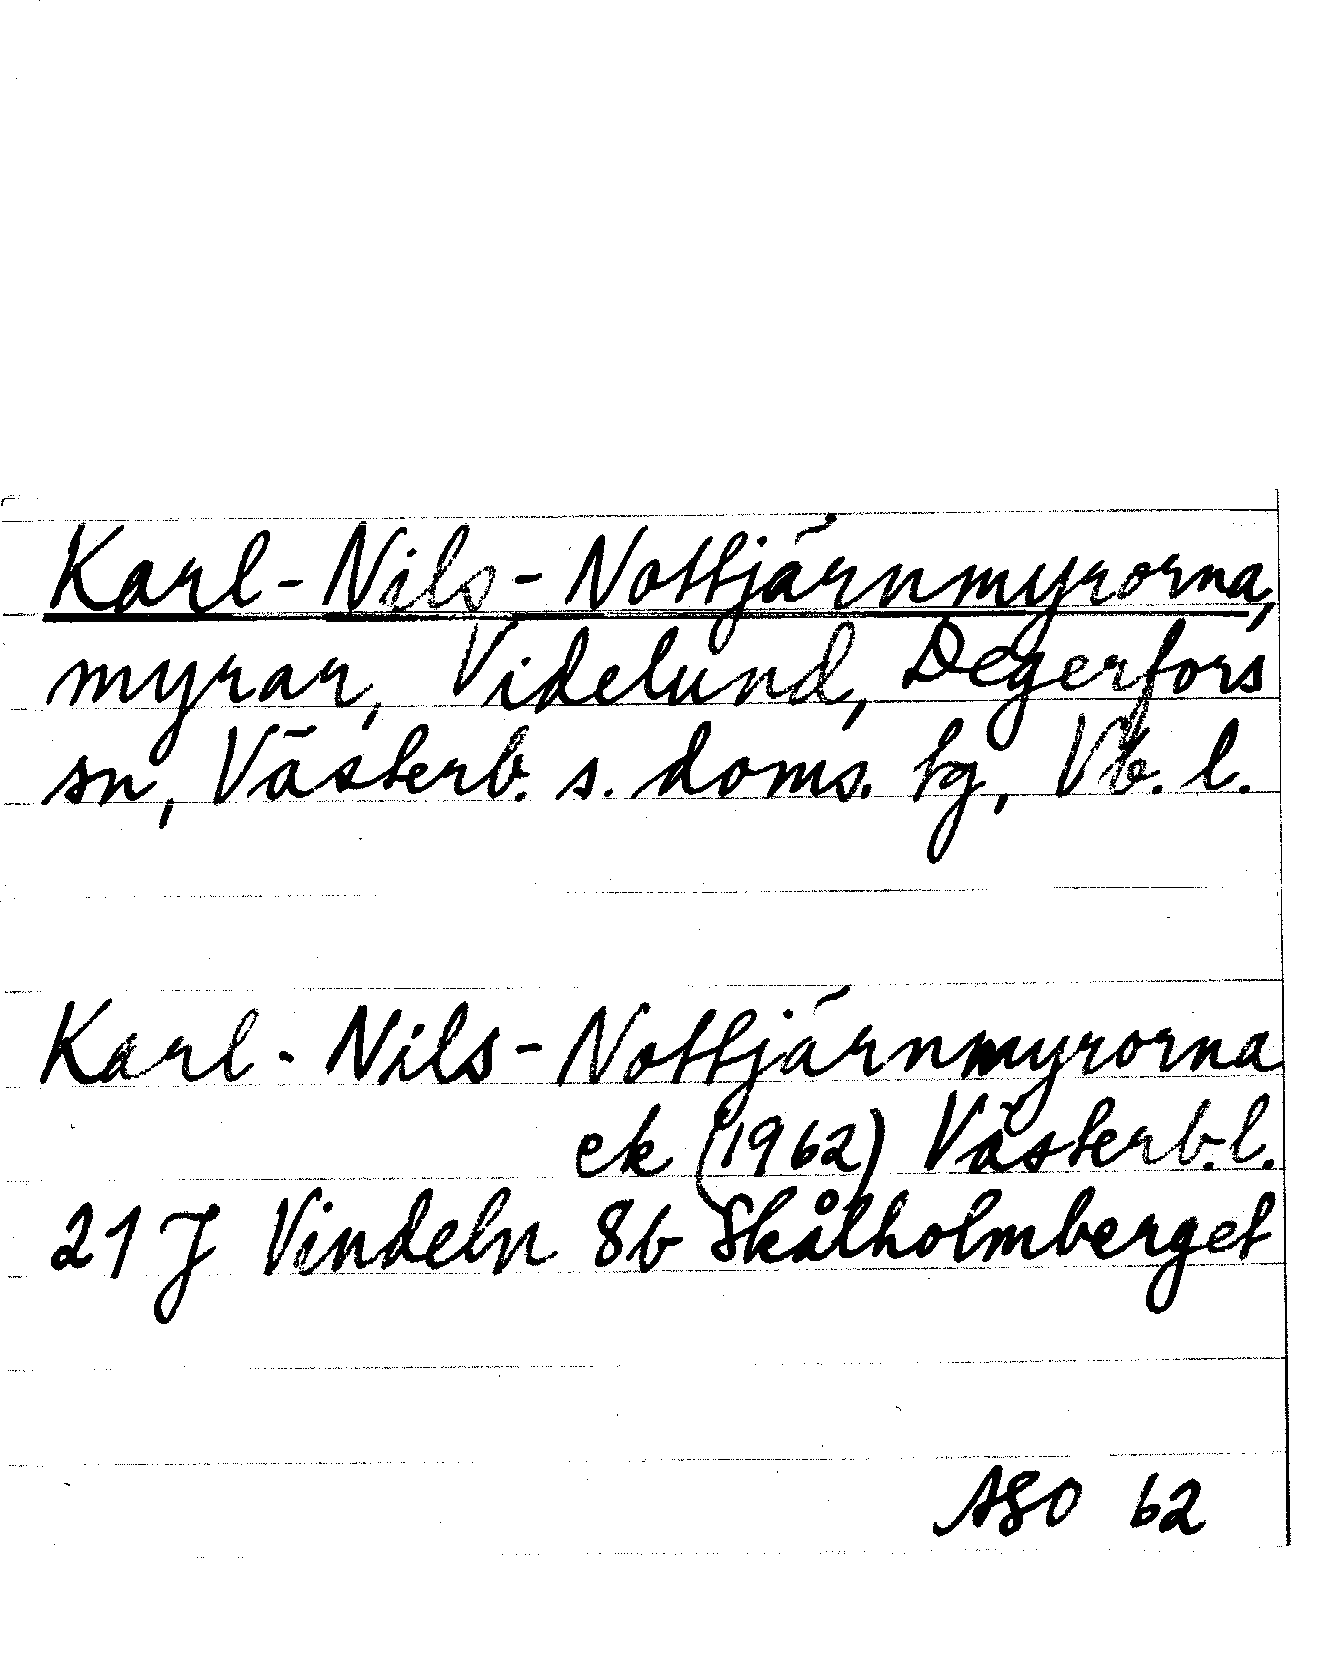 Karl-Nils-Nottjärnmyrorna,
myrar, Videlund, Degerfors
sn, Västerb. s. doms. tg, Vb. l.
Karl-Nils-Nottjärnmyrorna
ek (1962) Västerb.l.
21 J Vindeln 8b Skålholmberget
ASO 62